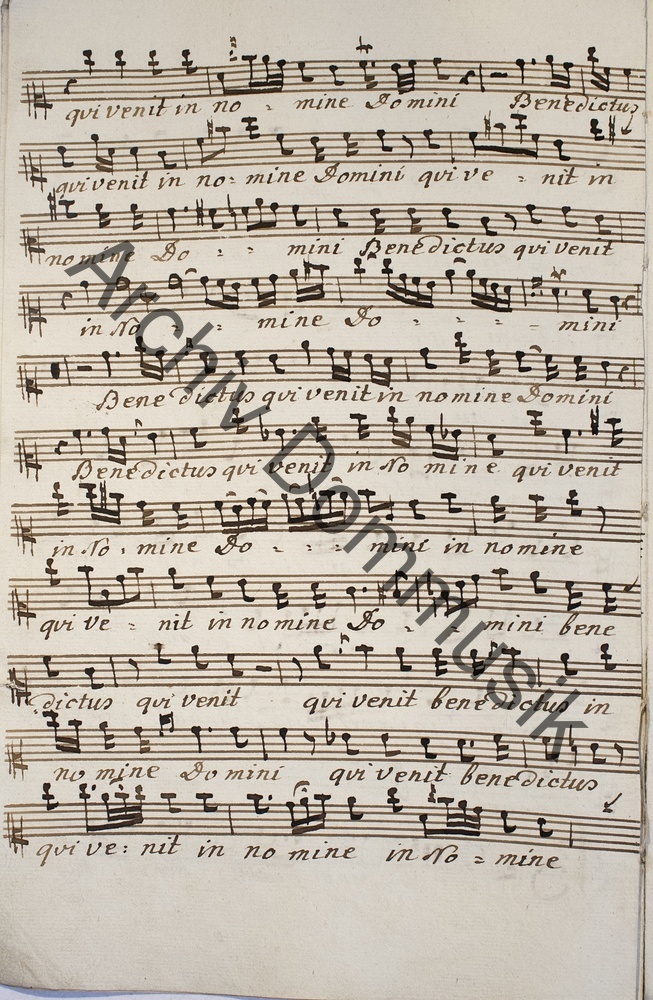 qui venit in no = mine Domini Benedictus
qui venit in no = mine Domini qui ve = nit in
nomine Do = = mini Benedictus qui venit
in No = = mine Do = = = = mini
Benedictus qui venit in nomine Domini
Benedictus qui venit in No mine qui venit
in No = mine Do = = = mini in nomine
qui ve = nit in nomine Do = = mini bene
dictus qui venit qui venit benedictus in
no mine Domini qui venit benedictus
qui ve = nit in no mine in No = mine
Archiv Dommusik